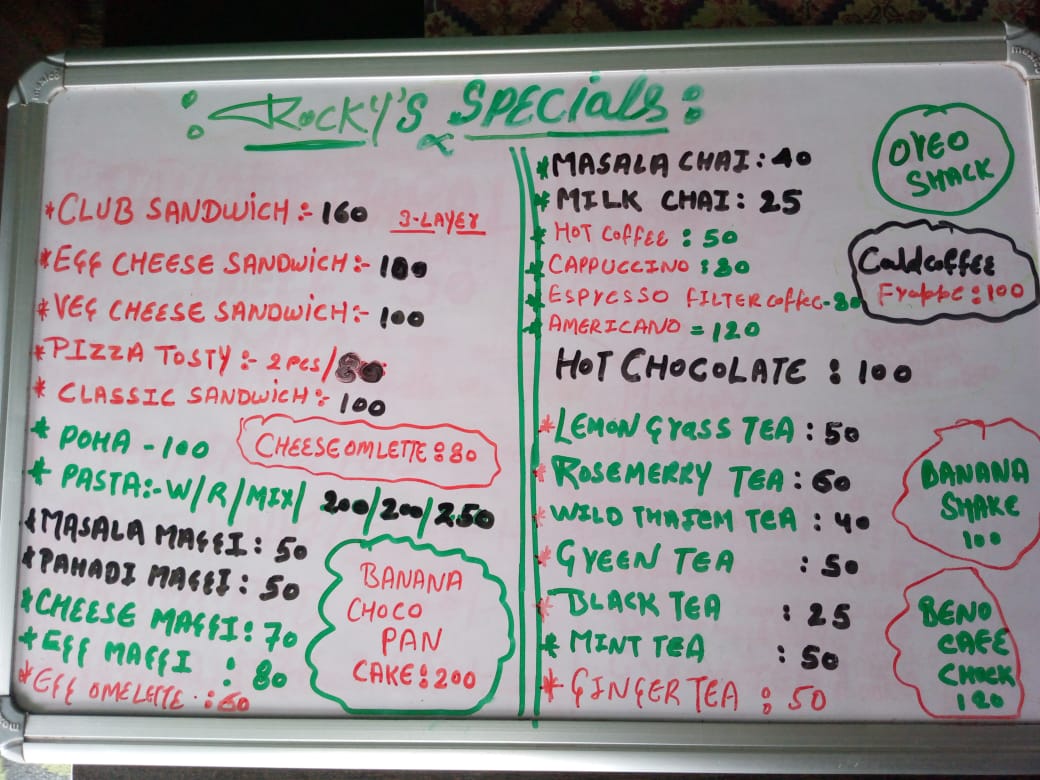 : ROCKY'S SPECIALS :
* CLUB SANDWICH :- 160 3-LAYER
* EGG CHEESE SANDWICH :- 100
* VEG CHEESE SANDWICH :- 100
* PIZZA TOSTY :- 2 PCS/80
* CLASSIC SANDWICH :- 100
* POHA - 100
CHEESE OMLETTE : 80
* PASTA :- W/R/MIX/ 200/200/250
* MASALA MAGGI : 50
* PAHADI MAGGI : 50
* CHEESE MAGGI : 70
* EGG MAGGI : 80
* EGG OMELETTE : 60
BANANA
CHOCO
PAN
CAKE : 200
* MASALA CHAI : 40
* MILK CHAI : 25
* HOT COFFEE : 50
* CAPPUCCINO : 80
* ESPRESSO FILTER COFFEE - 80
* AMERICANO = 120
HOT CHOCOLATE : 100
* LEMON GRASS TEA : 50
* ROSEMERRY TEA : 60
* WILD THAJEM TEA : 40
* GREEN TEA : 50
* BLACK TEA : 25
* MINT TEA : 50
* GINGER TEA : 50
OREO
SHACK
Cold coffee
Frappe : 100
BANANA
SHAKE
100
BENO
CAFE
CHOCK
120